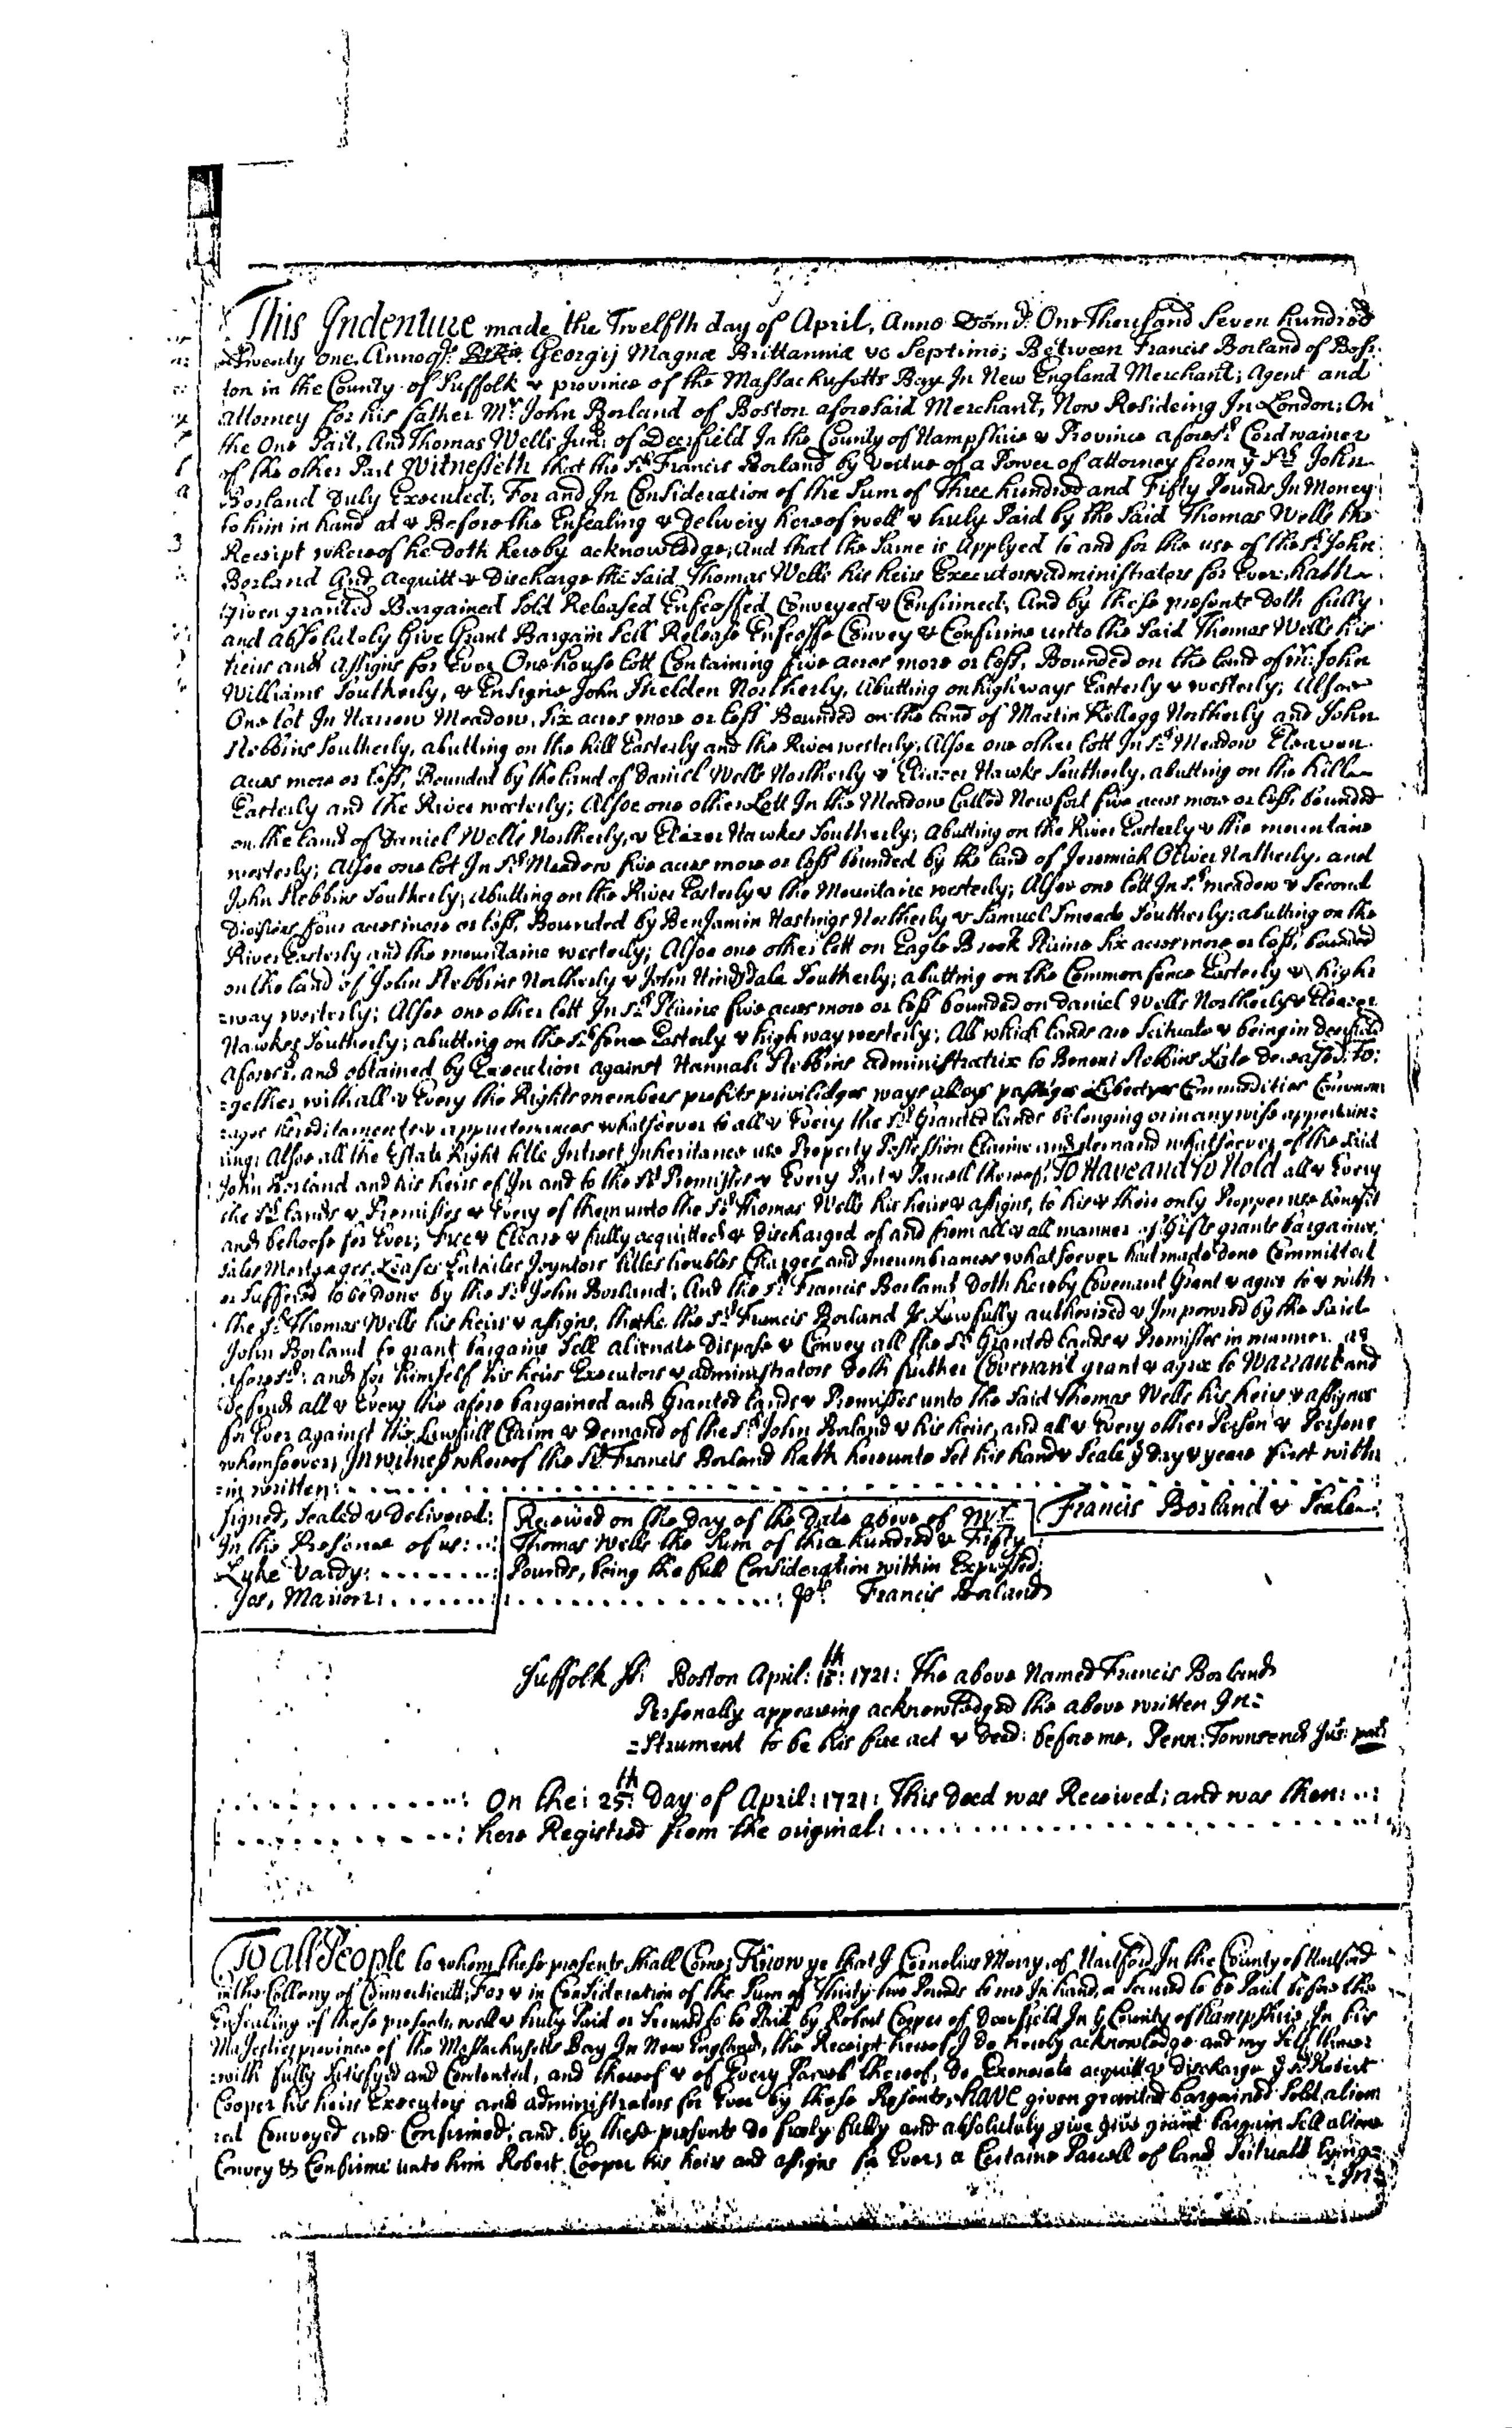 This Indenture made the Twelfth day of April, Anno Domi: One Thousand Seven hundred
Twenty One, Annoqe: Georgij Magnæ Brittanniæ &c Septimo; Between Francis Borland of Bos:
ton in the County of Suffolk & province of the Massachusetts Bay In New England Merchant; Agent and
Attorney for his father Mr. John Borland of Boston aforesaid Merchant, Now Resideing In London; On
the One Part, And Thomas Wells Junr: of Deerfield In the County of Hampshire & Province aforesd: Cordwainer
of the other Part Witnesseth that the sd. Francis Borland by vertue of a Power of attorney from ye sd. John
Borland Duly Executed; For and In Consideration of the Sum of Three hundred and Fifty Pounds In Money
to him in hand at & Before the Ensealing & Delivery hereof well & truly Paid by the Said Thomas Wells the
Receipt whereof he doth hereby acknowledge; And that the Same is applyed to and for the use of the sd. John
Borland And acquitt & Discharge the Said Thomas Wells his heirs Executors & administrators for Ever: hath
Given granted Bargained Sold Released Enfeoffed Conveyed & Confirmed; And by these presents doth fully
and absolutely Give Grant Bargain Sell Release Enfeoffe Convey & Confirme unto the Said Thomas Wells his
heirs and assigns for Ever One house lott Containing five acres more or less, Bounded on the land of mr: John
Williams Southerly, & Ensigne John Shelden Northerly, Abutting on highways Easterly & westerly; Alsoe
One lot In Narrow Meadow, six acres more or less Bounded on the land of Martin Kellogg Northerly and John
Stebbins Southerly, abutting on the hill Easterly and the River westerly; Alsoe one other lott In sd. Meadow Eleaven
acres more or less, Bounded by the land of Daniel Wells Northerly & Eliazer Hawks Southerly, abutting on the hill
Easterly and the River westerly; Alsoe one other Lott In the Meadow Called New fort five acres more or less, bounded
on the land of Daniel Wells Northerly, & Eleazer Hawkes Southerly; Abutting on the River Easterly & the mountaine
westerly; Alsoe one lot In sd. Meadow five acres more or less bounded by the land of Jeremiah Olliver Northerly, and
John Stebbins Southerly; Abutting on the River Easterly & the Mountaine westerly; Alsoe one lott In sd. meadow & Second
Division four acres more or less, Bounded by Benjamin Hastings Northerly & Samuel Smeade Southerly; abutting on the
River Easterly and the mountaine westerly; Alsoe one other lott on Eagle Brook Plaine Six acres more or less, bounded
on the land of John Stebbins Northerly & John Hindsdale Southerly; abutting on the Common fence Easterly & high
=way westerly; Alsoe one other lott In sd. Plaine five acres more or less bounded on Daniel Wells Northerly & Eleazer
Hawkes Southerly; abutting on the sd. fence Easterly & high way westerly; All which lands are Scituate & being in deerfield
aforesd. and obtained by Execution against Hannah Stebbins administratrix to Benoni Stebbins Late deceased; To:
=gether with all & Every the Rights members profits priviledges ways alleys passages Commodities
=ages hereditaments & appurtenances whatsoever to all & Every the sd. Granted lands belonging or in any wise appertein:
ing; Alsoe all the Estate Right title Intrest Inheritance use Property Possession Claime and demand whatsoever of the said
John Borland and his heirs of In and to the sd. Premisses & Every Part & Parcell thereof. To Have and To Hold all & Every
the sd. lands & Premisses & Every of them unto the sd. Thomas Wells his heirs & assigns, to his & their only Propper use benefit
and behoofe for Ever; Free & Cleare & fully acquitted & Discharged of and from all & all manner of Gifts grants bargaines,
Sales Mortgages Leases Entailes Joyntors titles troubles Charges and Incumbrances whatsoever had made done Committed
or Suffered to be done by the sd. John Borland; And the sd. Francis Borland Doth hereby Covenant Grant & agree to & with
the sd. Thomas Wells his heirs & assigns, the sd. Francis Borland Is Lawfully authorised & Impowred by the Said
John Borland to grant bargaine Sell alienate Dispose & Convey all the sd. Granted lands & Premisses in manner as
aforesd: and for himself his heirs Executors & administrators doth further Covenant grant & agree to Warrant and
Defend all & Every the afore bargained and Granted lands & Premisses unto the Said Thomas Wells his heirs & assignes
for Ever against the Lawfull Claim & Demand of the sd. John Borland & his heirs, and all & Every other Person & Persons
whomsoever; In witness whereof the sd. Francis Borland hath hereunto Set his hand & Seale ye day & yeare first with
=in written:
Signed, Sealed & Delivered:
In the Presence of us:
Lyke Vardy:
Jos, Marion:
Received on the day of the Date above of Mr.
Thomas Wells the Sum of three hundred & Fifty
Pounds, being the full Consideration within Expressed:
Francis Borland
Francis Borland & Seale
Suffolk ss: Boston April: 18th: 1721: The above Named Francis Borland
Personally appearing acknowledged the above written In=
=Strument to be his free act & deed: before me, Penn: Townsend Jus: pac
On the: 25th: day of April: 1721: This deed was Received; and was then:
here Registred from the original:
To all People to whom these presents shall Come; Know ye that I Cornelius Merry, of Hartford In the County of Hartford
in the Collony of Connecticutt; For & in Consideration of the Sum of Thirty two Pounds to me In hand, or Secured to be Paid before the
Ensealing of these presents, well & truly Paid or Secured so to be Paid, by Robert Cooper of Deerfield In ye County of Hampshire In his
Majesties province of the Massachusetts Bay In New England, the Receipt hereof I do hereby acknowledge and my Self there:
=with fully Satisfyed and Contented, and thereof & of Every Parcel thereof, do Exonerate acquitt & discharge ye sd. Robert
Cooper his heirs Executors and administrators for Ever by these Presents, have given granted bargained Sold, alien
=ed Conveyed and Confirmed; and by these presents do freely fully and absolutely give give grant bargain Sell aliene
Convey & Confirme unto him Robert Cooper his heirs and assigns for Ever; a Certaine Parcell of land Scituate lying=
=In=